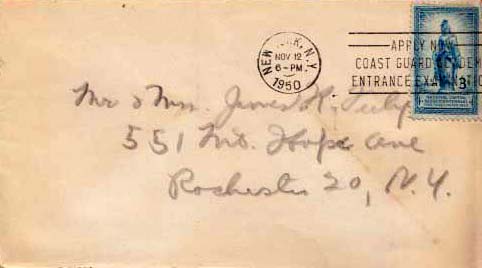 NEW YORK, N.Y.
NOV 12
6-PM
1950
APPLY NOW
COAST GUARD ACADEM
ENTRANCE EXAMINATIO
3¢
Mr & Mrs. James H.
551 Mt. Hope Ave
Rochester 20, N.Y.